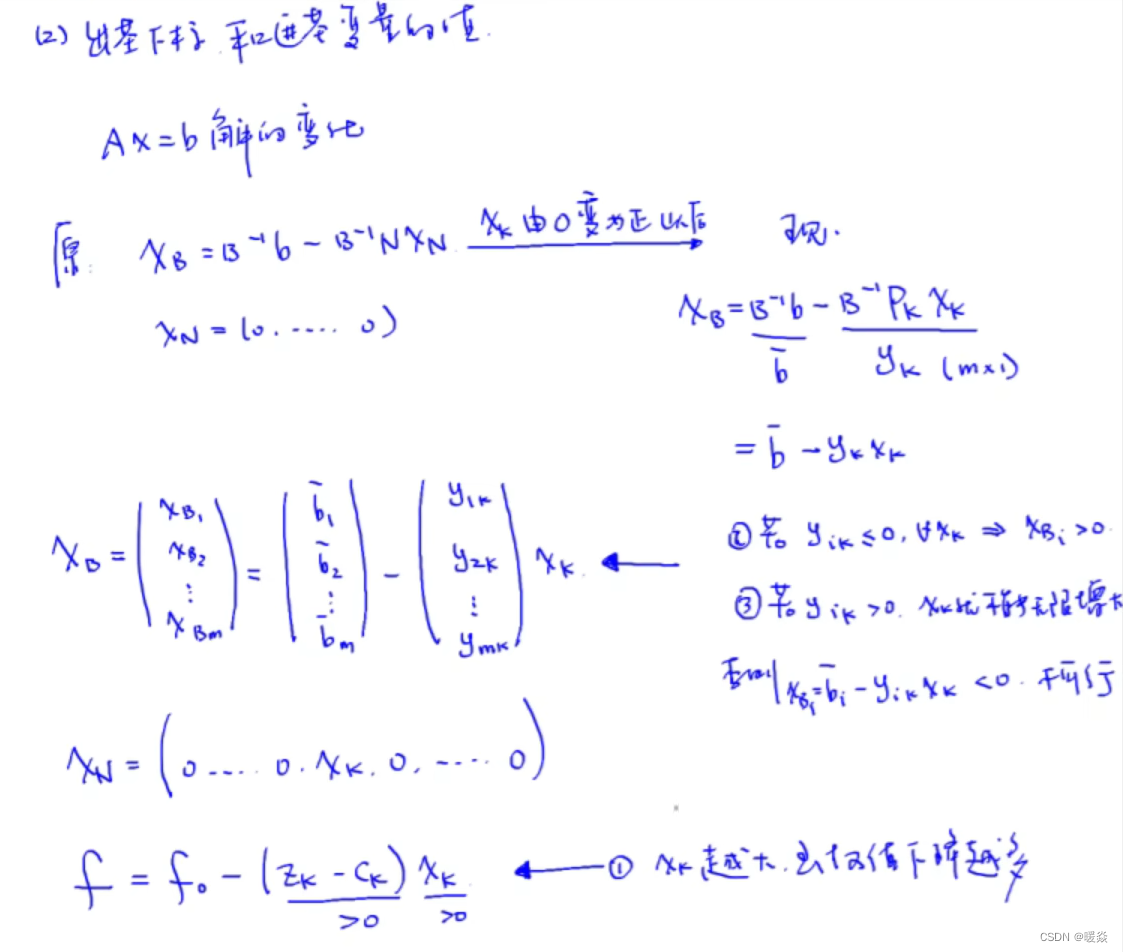 (2) 出基下标 和进基变量的值.
Ax=b 解的变化
原: x_B = B⁻¹b - B⁻¹N x_N x_K 由0变为正以后 现.
x_N = (0. ..... 0)
x_B = B⁻¹b - B⁻¹P_K x_K
b̄ y_K (m×1)
= b̄ - y_K x_K
x_B = (x_B₁ x_B₂ ⋮ x_Bm) = (b̄₁ b̄₂ ⋮ b̄m) - (y₁K y₂K ⋮ ymK) x_K.
② 若 y_iK ≤ 0, ∀x_K ⇒ x_Bi > 0.
③ 若 y_iK > 0. x_K 就不能无限增大
否则 x_Bi = b̄i - y_iK x_K < 0. 不可行
x_N = (0 .... 0. x_K. 0. .... 0)
f = f₀ - (z_K - c_K) x_K
>0 >0
① x_K 越大. 值下降越多
CSDN @暖焱